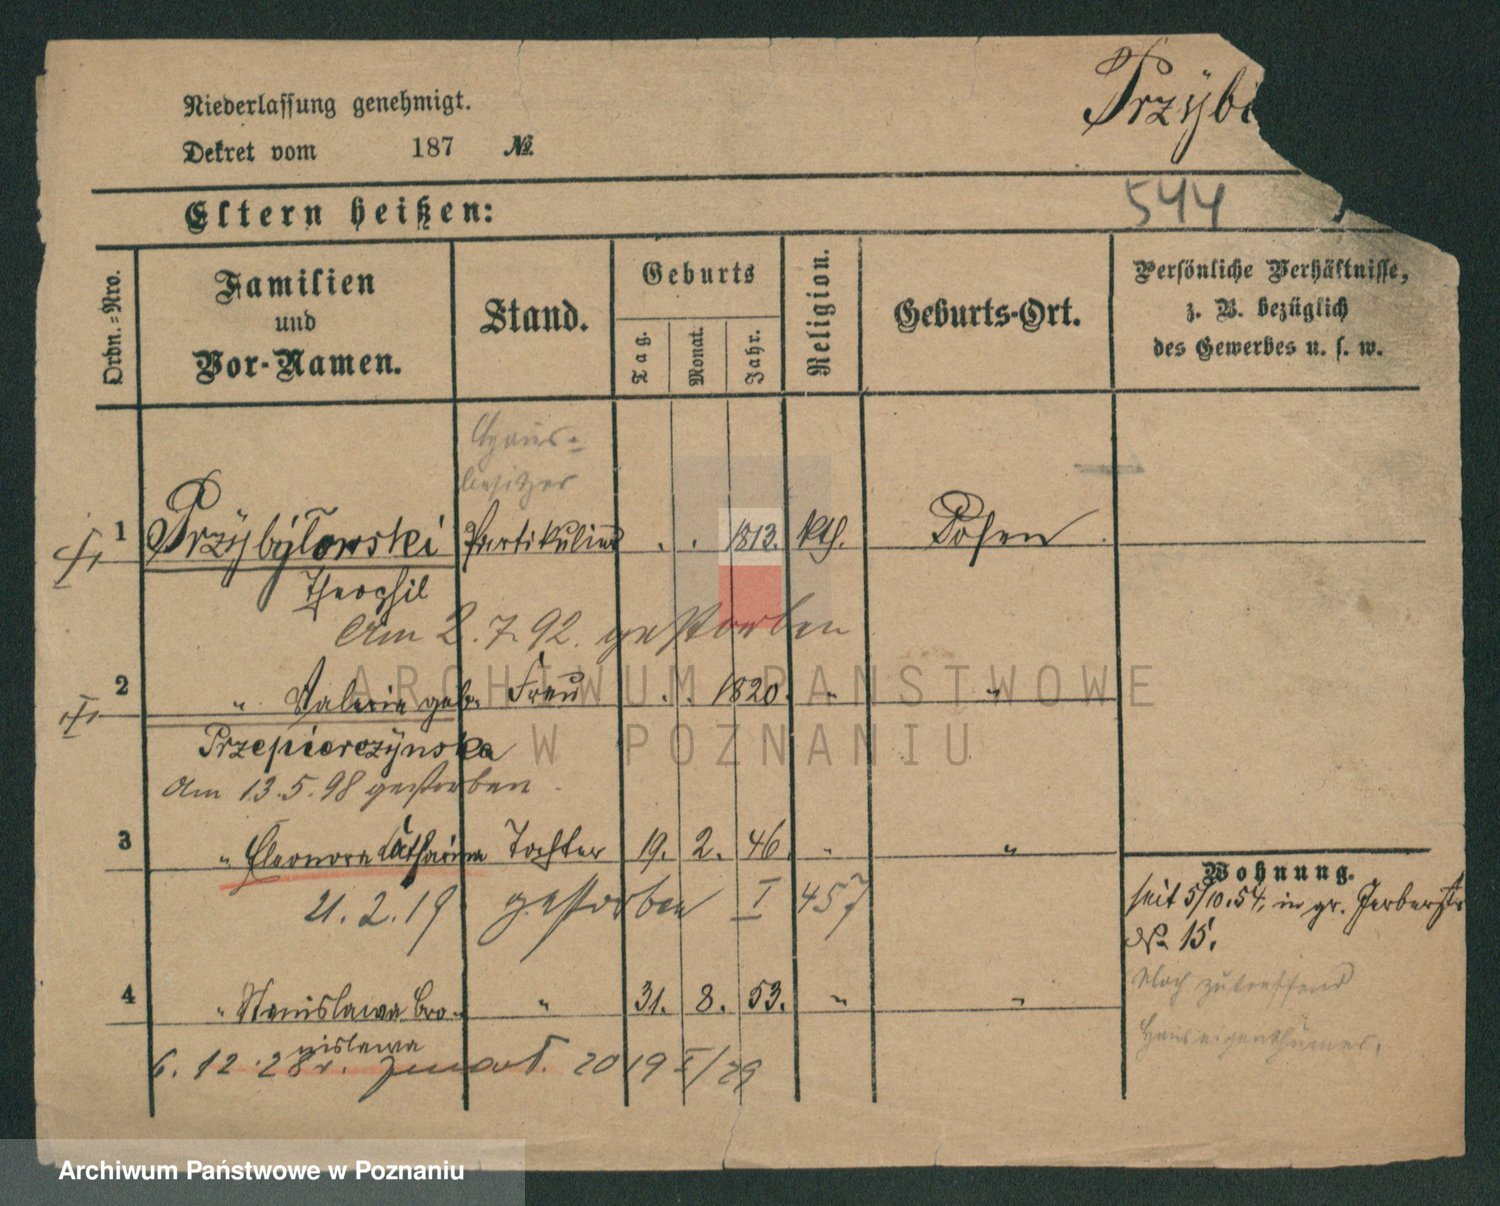 Niederlassung genehmigt.
Przÿb
Dekret vom 187 №
Eltern heißen:
544
Ordn.-Nro.
Familien
und
Vor-Namen.
Stand.
Geburts
Tag.
Monat.
Jahr.
Religion.
Geburts-Ort.
Persönliche Verhältnisse,
z. B. bezüglich
des Gewerbes u. s. w.
Haus-
besitzer
1 Przÿbÿlowski Partikulier . . 1813. kth. Posen
Theophil
Am 2.7.92. gestorben
2 " Valeria geb. Frau . . 1820. " "
Przepierczÿnska
Am 13.5.98 gestorben.
3 " Eleonora Catharina Tochter 19. 2. 46. " "
21.2.19 gestorben I 457
4 " Stanislawa Bro- " 31. 8. 53. " "
nislawa
6. 12. 28 r. zmarł. 2019 I/29
Wohnung.
seit 5/10.54. in gr. Gerberstr
No 15.
Noch zutreffend
Hauseigenthümer.
ARCHIWUM PAŃSTWOWE
W POZNANIU
Archiwum Państwowe w Poznaniu